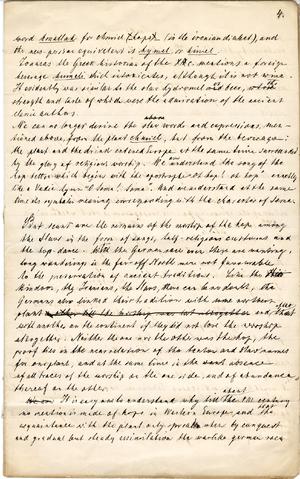 4.
word smallah for chmiel (haps) (in the iranian dialect), and
the new persian equivalent is hymel or himel.
Joannes the Greek historian of the XII c. mentions a foreign
beverage humeli which intoxicates, although it is not wine.
It evidently was similar to the slav hydromel and beer, the
strength and taste of which were the admiration of the ancient
classic authors.
above
We can as anger derive the slav words and expressions, men-
tioned above, from the plant chmiel, but from the beverage:
the plant and the drink entered Europe at the same time surrounded
by the glory of religious worship. We understand the song of the
hop better which begins with the apostrophe "oh hop! oh hop" exactly
like a Vedic hymn "O Soma! Soma". And we understand at the same
time its symbolic meaning corresponding with the character of Soma.
But scant are the remains of the worship of the hop among
the Slavs in the form of songs, half-religious customs and
the hop-dance. With the Germans even these are wanting:
long wanderings in the far off North were not favourable
to the preservation of ancient traditions. Like the
Hindoos, the Iranians, the Slavs, there can be no doubt, the
Germans also linked their tradition with some northern
plant and that
with another on the continent if they did not lose the worship
altogether. Neither the one nor the other was the hop, the
proof lies in the near relation of the German and Slav names
for one plant, and at the same time in the absence
of all traces of the worship on the one side, and of abundance
thereof on the other.
It is easy to understand why till the VIII century
no mention is made of hops in Western Europe, and that
acquaintance with the plant only spreads there by conquest
and gradual but steady assimilation the warlike german race